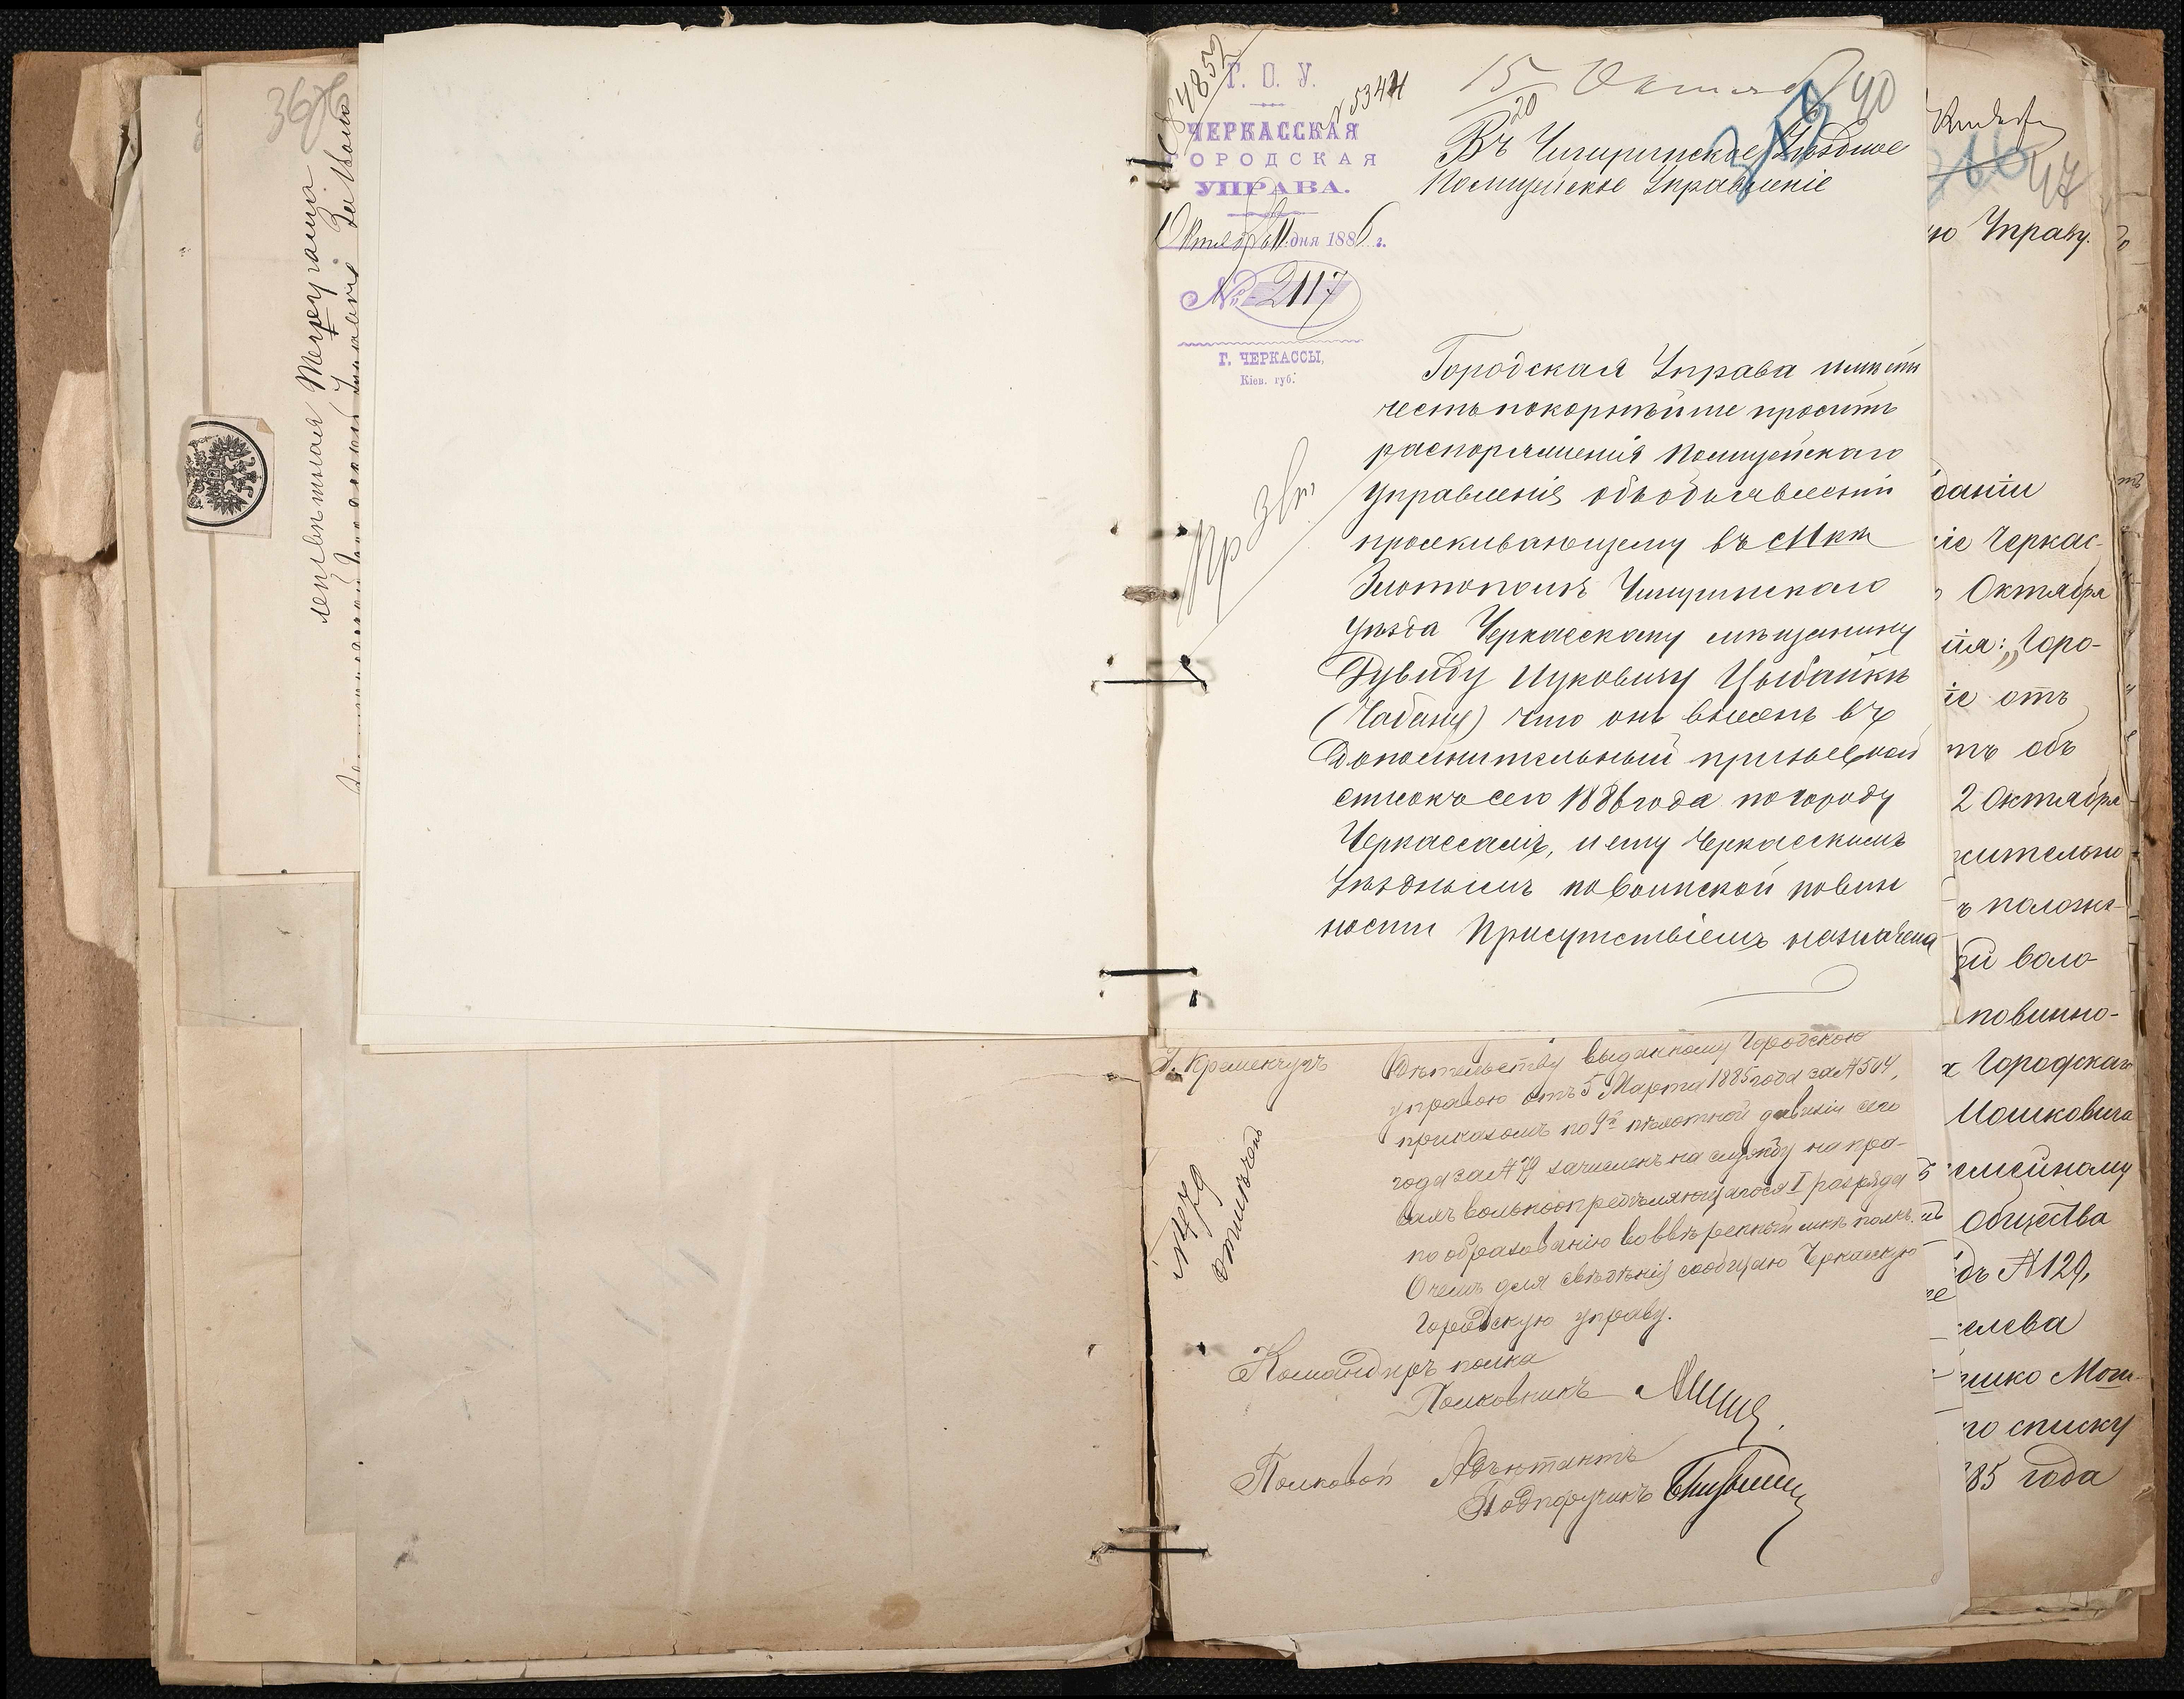 36
Г. О. У.
ЧЕРКАССКАЯ
ГОРОДСКАЯ
УПРАВА.
Октября 11 дня 1886 г.
№ 2117
Г. ЧЕРКАССЫ,
Кіев. губ.
4852
№ 5344
15 Октября
20
40
Въ Чигиринское Уѣздное
Полицейское Управленіе
Городская Управа имѣетъ
честь покорнѣйше просить
распоряженія Полицейскаго
Управленія объ объявленіи
проживающему въ Мѣст
Златополѣ Чигиринскаго
уѣзда Черкасскому мѣщанину
Дувиду Ицковичу Цыбайкѣ
(Чабану) что онъ внесенъ въ
Дополнительный призывной
списокъ сего 1886 года по городу
Черкассамъ, и ему Черкасскимъ
Уѣзднымъ по воинской повин
ности Присутствіемъ назначена
Г. Кременчугъ
выданному Городскою
управою отъ 5 Марта 1885 года за № 504,
приказомъ по 9й пѣхотной дивизіи сего
года за № 79 зачисленъ на службу на пра-
вахъ вольноопредѣляющагося I разряда
по образованію во ввѣренный мнѣ полкъ.
О чемъ для свѣдѣнія сообщаю Черкасскую
Городскую управу.
Командиръ полка
Полковникъ
Полковой Адъютантъ
Подпоручикъ
47
ю Управу.
даніи
іе Черкас-
Октября
ія: „Горо-
іе отъ
тъ объ
2 Октября
жительно
ъ полож-
ой воло-
повинно-
х Городскаго
Мошковича
семейному
Общества
дъ № 129,
елева
шко Мош-
по списку
85 года